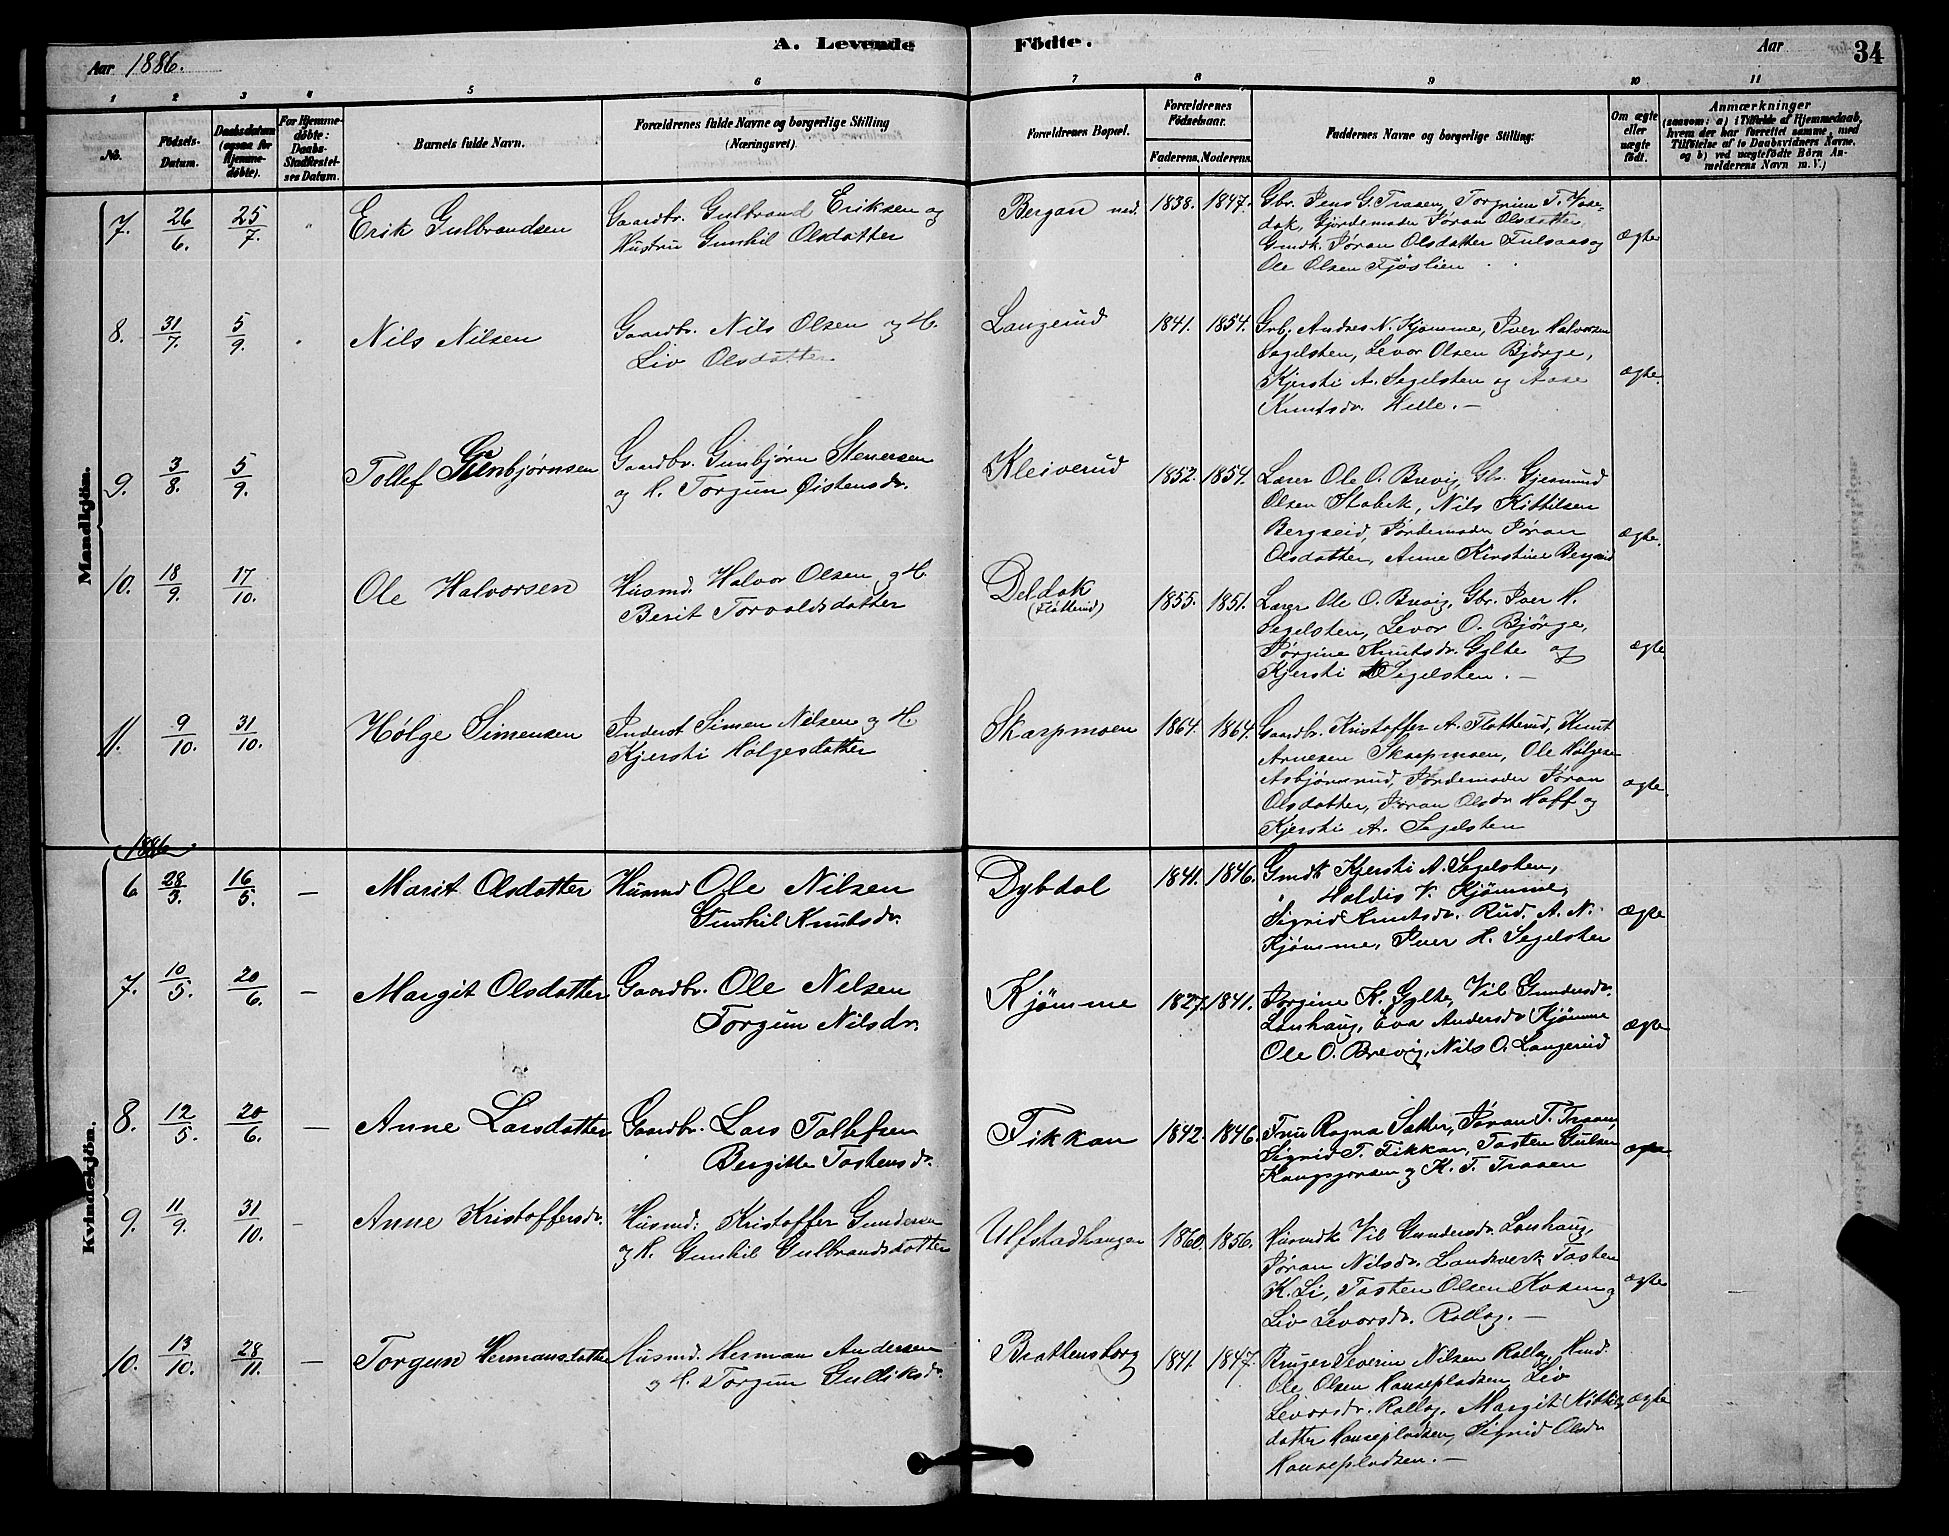 A. Levende Fødte.
Aar 1886.
Aar
34
1 2 3 4 5 6 7 8 9 10 11
No.
Fødsels-Datum.
Daabsdatum (ogsaa for Hjemme-døbte).
For Hjemme-døbte: Daabs-Stadfæstel-ses Datum.
Barnets fulde Navn.
Forældrenes fulde Navne og borgerlige Stilling (Næringsvei).
Forældrenes Bopæl.
Forældrenes Fødselsaar.
Faderens. Moderens.
Faddernes Navne og borgerlige Stilling.
Om ægte eller uægte født.
Anmærkninger
(saasom: a) i Tilfælde af Hjemmedaab, hvem der har forrettet samme, med Tilføielse af to Daabsvidners Navne, og b) ved uægtefødte Børn An-melderens Navn m. V.)
Mandkjøn.
7. 26/6. 25/7. " Erik Gulbrandsen
Gaardbr. Gulbrand Eriksen og
Hustru Gunhil Olsdatter
Bergan ned. 1838. 1847.
Gbr. Jens G. Traaen, Torgrim T. Vose-
dak, Gjordemoder Jøran Olsdatter,
Gmdk. Jøran Olsdatter Fulsaas og
Ole Olsen Fjøslien
ægte
8. 31/7. 5/9. " Nils Nilsen
Gaardbr. Nils Olsen og H.
Liv Olsdatter
Langerud 1841. 1854.
Grb. Andres N. Kjømme, Iver Halvorsen
Segelsten, Levor Olsen Bjørge,
Kjersti A. Segelsten og Aase
Knutsdr. Helle. —
ægte.
9. 3/8. 5/9. Tollef Gunbjørnsen
Gaardbr. Gunbjørn Stenersen
og H. Torgun Øistensdr.
Kleiverud 1852. 1854.
Lærer Ole O. Brevig, Gbr. Gjermund
Olsen Stabek, Nils Kittilsen
Bergseid, Jordemoder Jøran
Olsdatter, Anne Kirstine Bergseid
ægte.
10. 18/9. 17/10. Ole Halvorsen
Husmd. Halvor Olsen og H.
Berit Torvaldsdatter
Deldak
(Flatterud)
1855. 1851.
Lærer Ole O. Brevig, Gbr. Iver H.
Segelsten, Levor O. Bjørge,
Jørgine Knutsdr. Gylte og
Kjersti A Segelsten. —
ægte
11. 9/10. 31/10. Hølge Simensen
Inderst Simen Nilsen og H.
Kjersti Hølgesdatter
Skarpmoen 1864. 1864.
Gaardbr. Kristoffer A. Flatterud, Knut
Arnesen Skarpmoen, Ole Hølgesen
Asbjørnrud, Jordemoder Jøran
Olsdatter, Jøran Olsdr. Hoff og
Kjersti A. Segelsten
ægte.
1886
Kvindekjøn.
6 28/3. 16/5. — Marit Olsdatter
Husmd Ole Nilsen
Gunhil Knutsdr.
Dybdal 1841. 1846.
Gmdk Kjersti A. Segelsten,
" Holdis V. Kjømme,
Sigrid Knutsdr. Rud. A. N.
Kjømme, Iver H. Segelsten
ægte
7. 10/5. 20/6. — Margit Olsdatter
Gaardbr. Ole Nilsen
Torgun Nilsdr.
Kjømme 1827. 1841.
Jørgine K. Gylte, Vil Gundersdr.
Lonhaug, Eva Andersdr. Kjømme
Ole O. Brevig, Nils O. Langerud
ægte
8. 12/5. 20/6. — Anne Larsdatter
Gaardbr. Lars Tollefsen
Bergitte Tostensdr.
Fikkan 1842. 1846.
Fru Ragna Satter, Jøran T. Traaen,
Sigrid T. Fikkan, Tosten Gulsen
og K. T. Traaen
ægte
9. 11/9. 31/10. — Anne Kristoffersdr.
Husmd: Kristoffer Gundersen
og H. Gunhil Gulbrandsdatter
Ulfstadhaugen 1860. 1856.
Husmdk Vil Gundersdr. Lonhaug,
Jøran Nilsdr. Landsverk, Tosten
K. Li, Tosten Olsen Kosen og
Liv Levorsdr. Rollag. —
ægte
10. 13/10. 28/11. — Torgun Hermansdatter
Husmd. Herman Andersen
og H. Torgun Gulliksdr.
Brattensborg 1841. 1847.
Bruger Severin Nilsen Rollag, Hmd.
Ole Olsen Hansepladsen, Liv
Levorsdr. Rollag, Margit Kittils-
datter Hansepladsen, Sigrid Olsdr
Hansepladsen. —
ægte